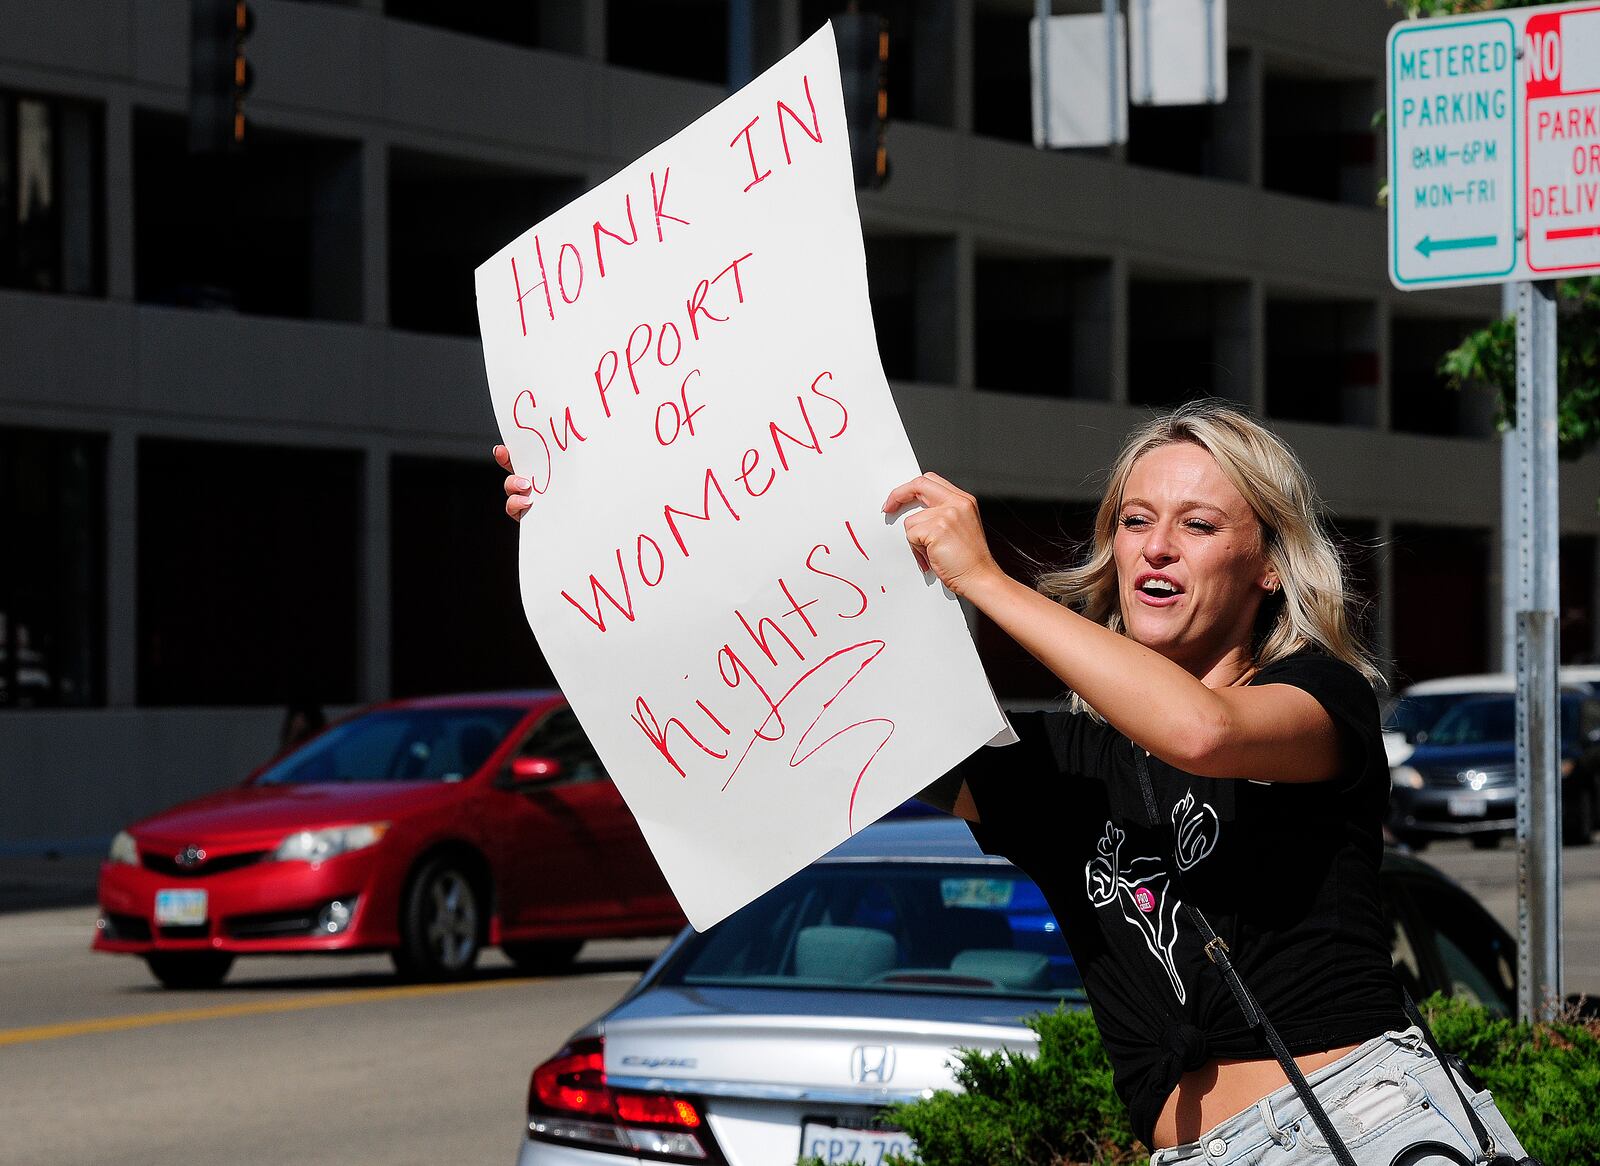 HONK IN
SuPPORT
Of
WOMeNS
RightS!
METERED
PARKING
8AM-6PM
MON-FRI
NO
OR
PRO
CIVIC